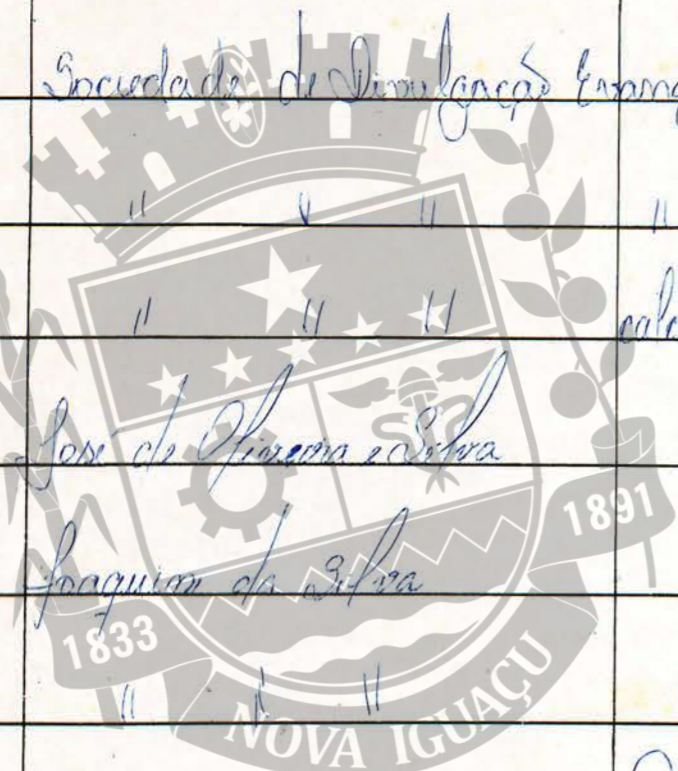 Sociedade de Divulgação Evang
" " " "
" " " calc
José de Oliveira e Silva
Joaquim da Silva
" " "
1833
1891
NOVA IGUAÇU